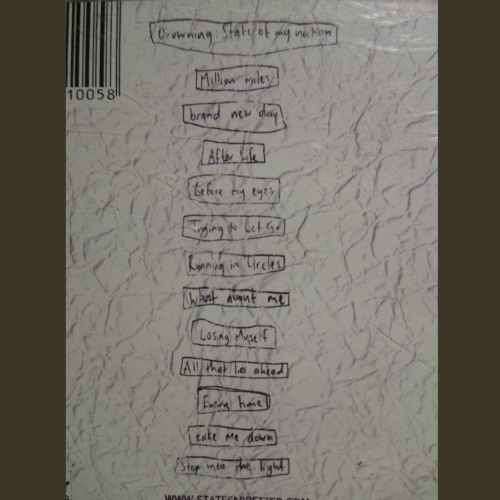 10058
Drowning: State of my nation
Million miles
brand new day
After Life
Before my eyes
Trying to Let Go
Running in Circles
What about me
Losing Myself
All that lies ahead
time
take me down
Step into the light